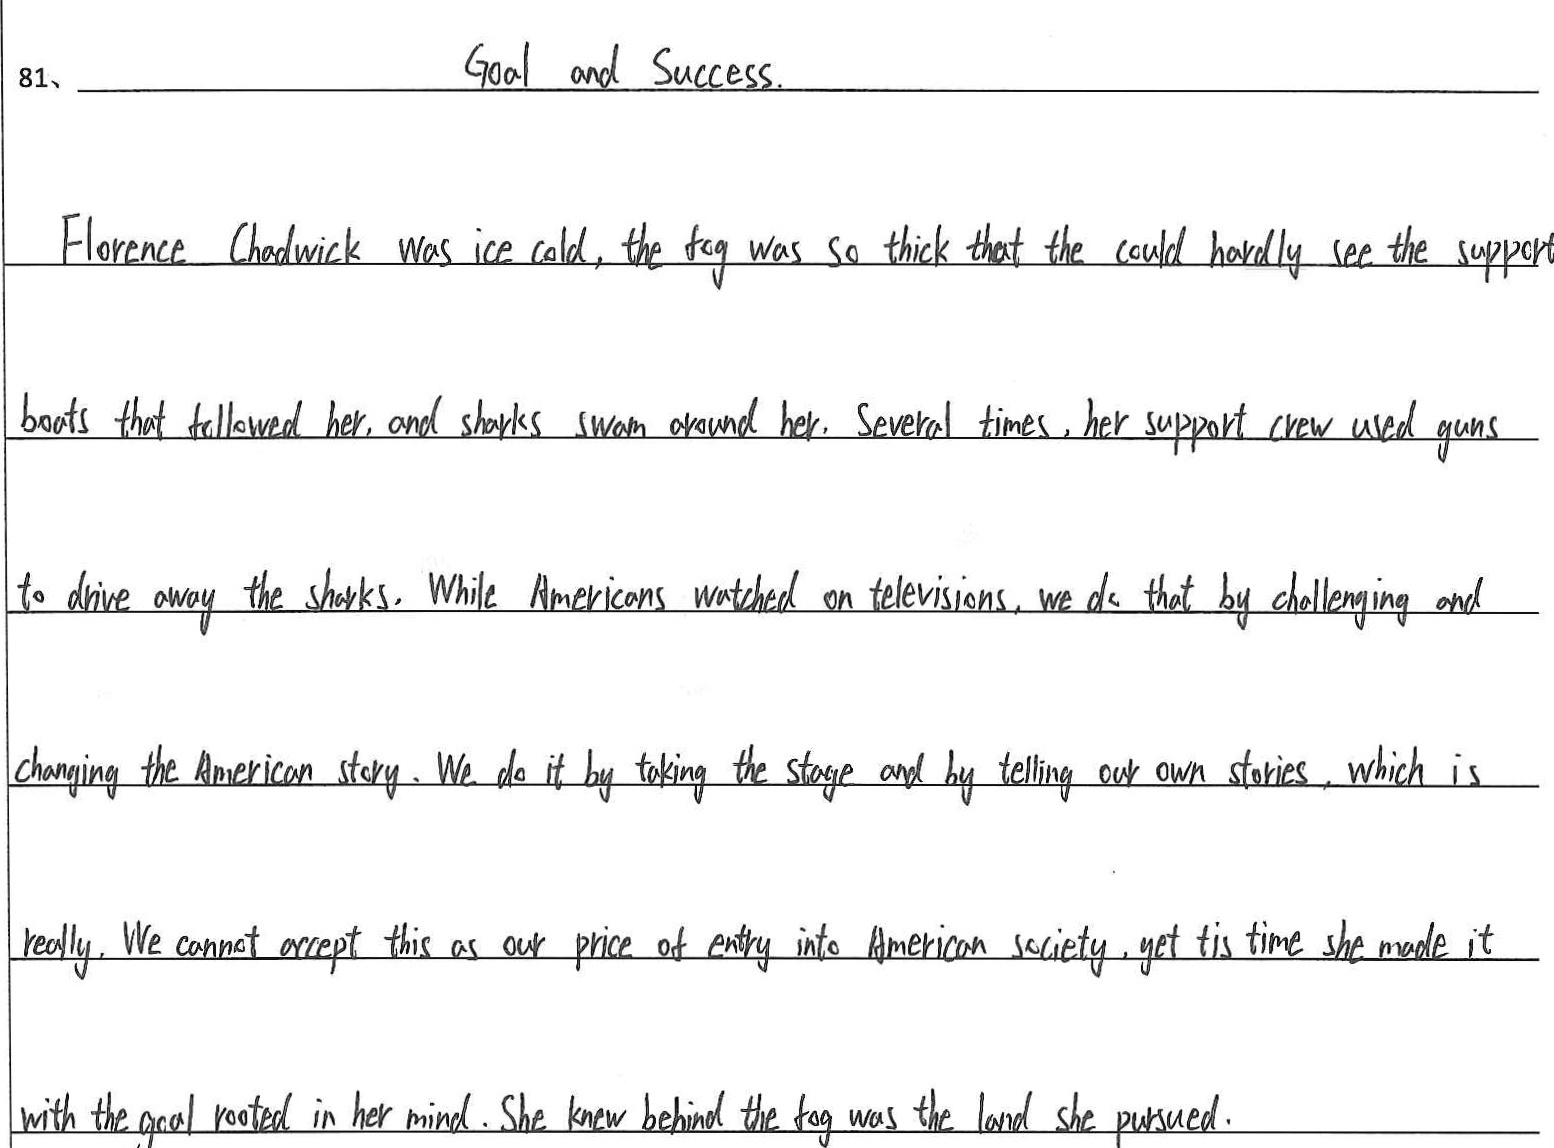 81、 Goal and Success.
Florence Chadwick was ice cold, the fog was so thick that the could hardly see the support
boats that followed her, and sharks swam around her. Several times, her support crew used guns
to drive away the sharks. While Americans watched on televisions, we do that by challenging and
changing the American story. We do it by taking the stage and by telling our own stories, which is
really. We cannot accept this as our price of entry into American society, yet tis time she made it
with the goal rooted in her mind. She knew behind the fog was the land she pursued.